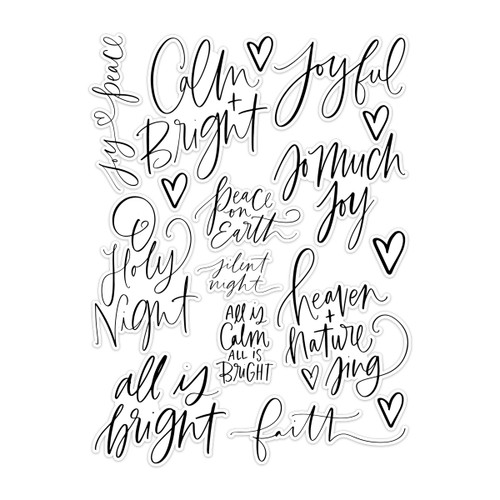 Joy ♡ peace
Calm
+
Bright
Joyful
So Much
Joy
peace
on
Earth
O
Holy
Night
silent
night
All is
Calm
ALL IS
BRIGHT
heaven
+
Nature
sing
all is
bright
faith